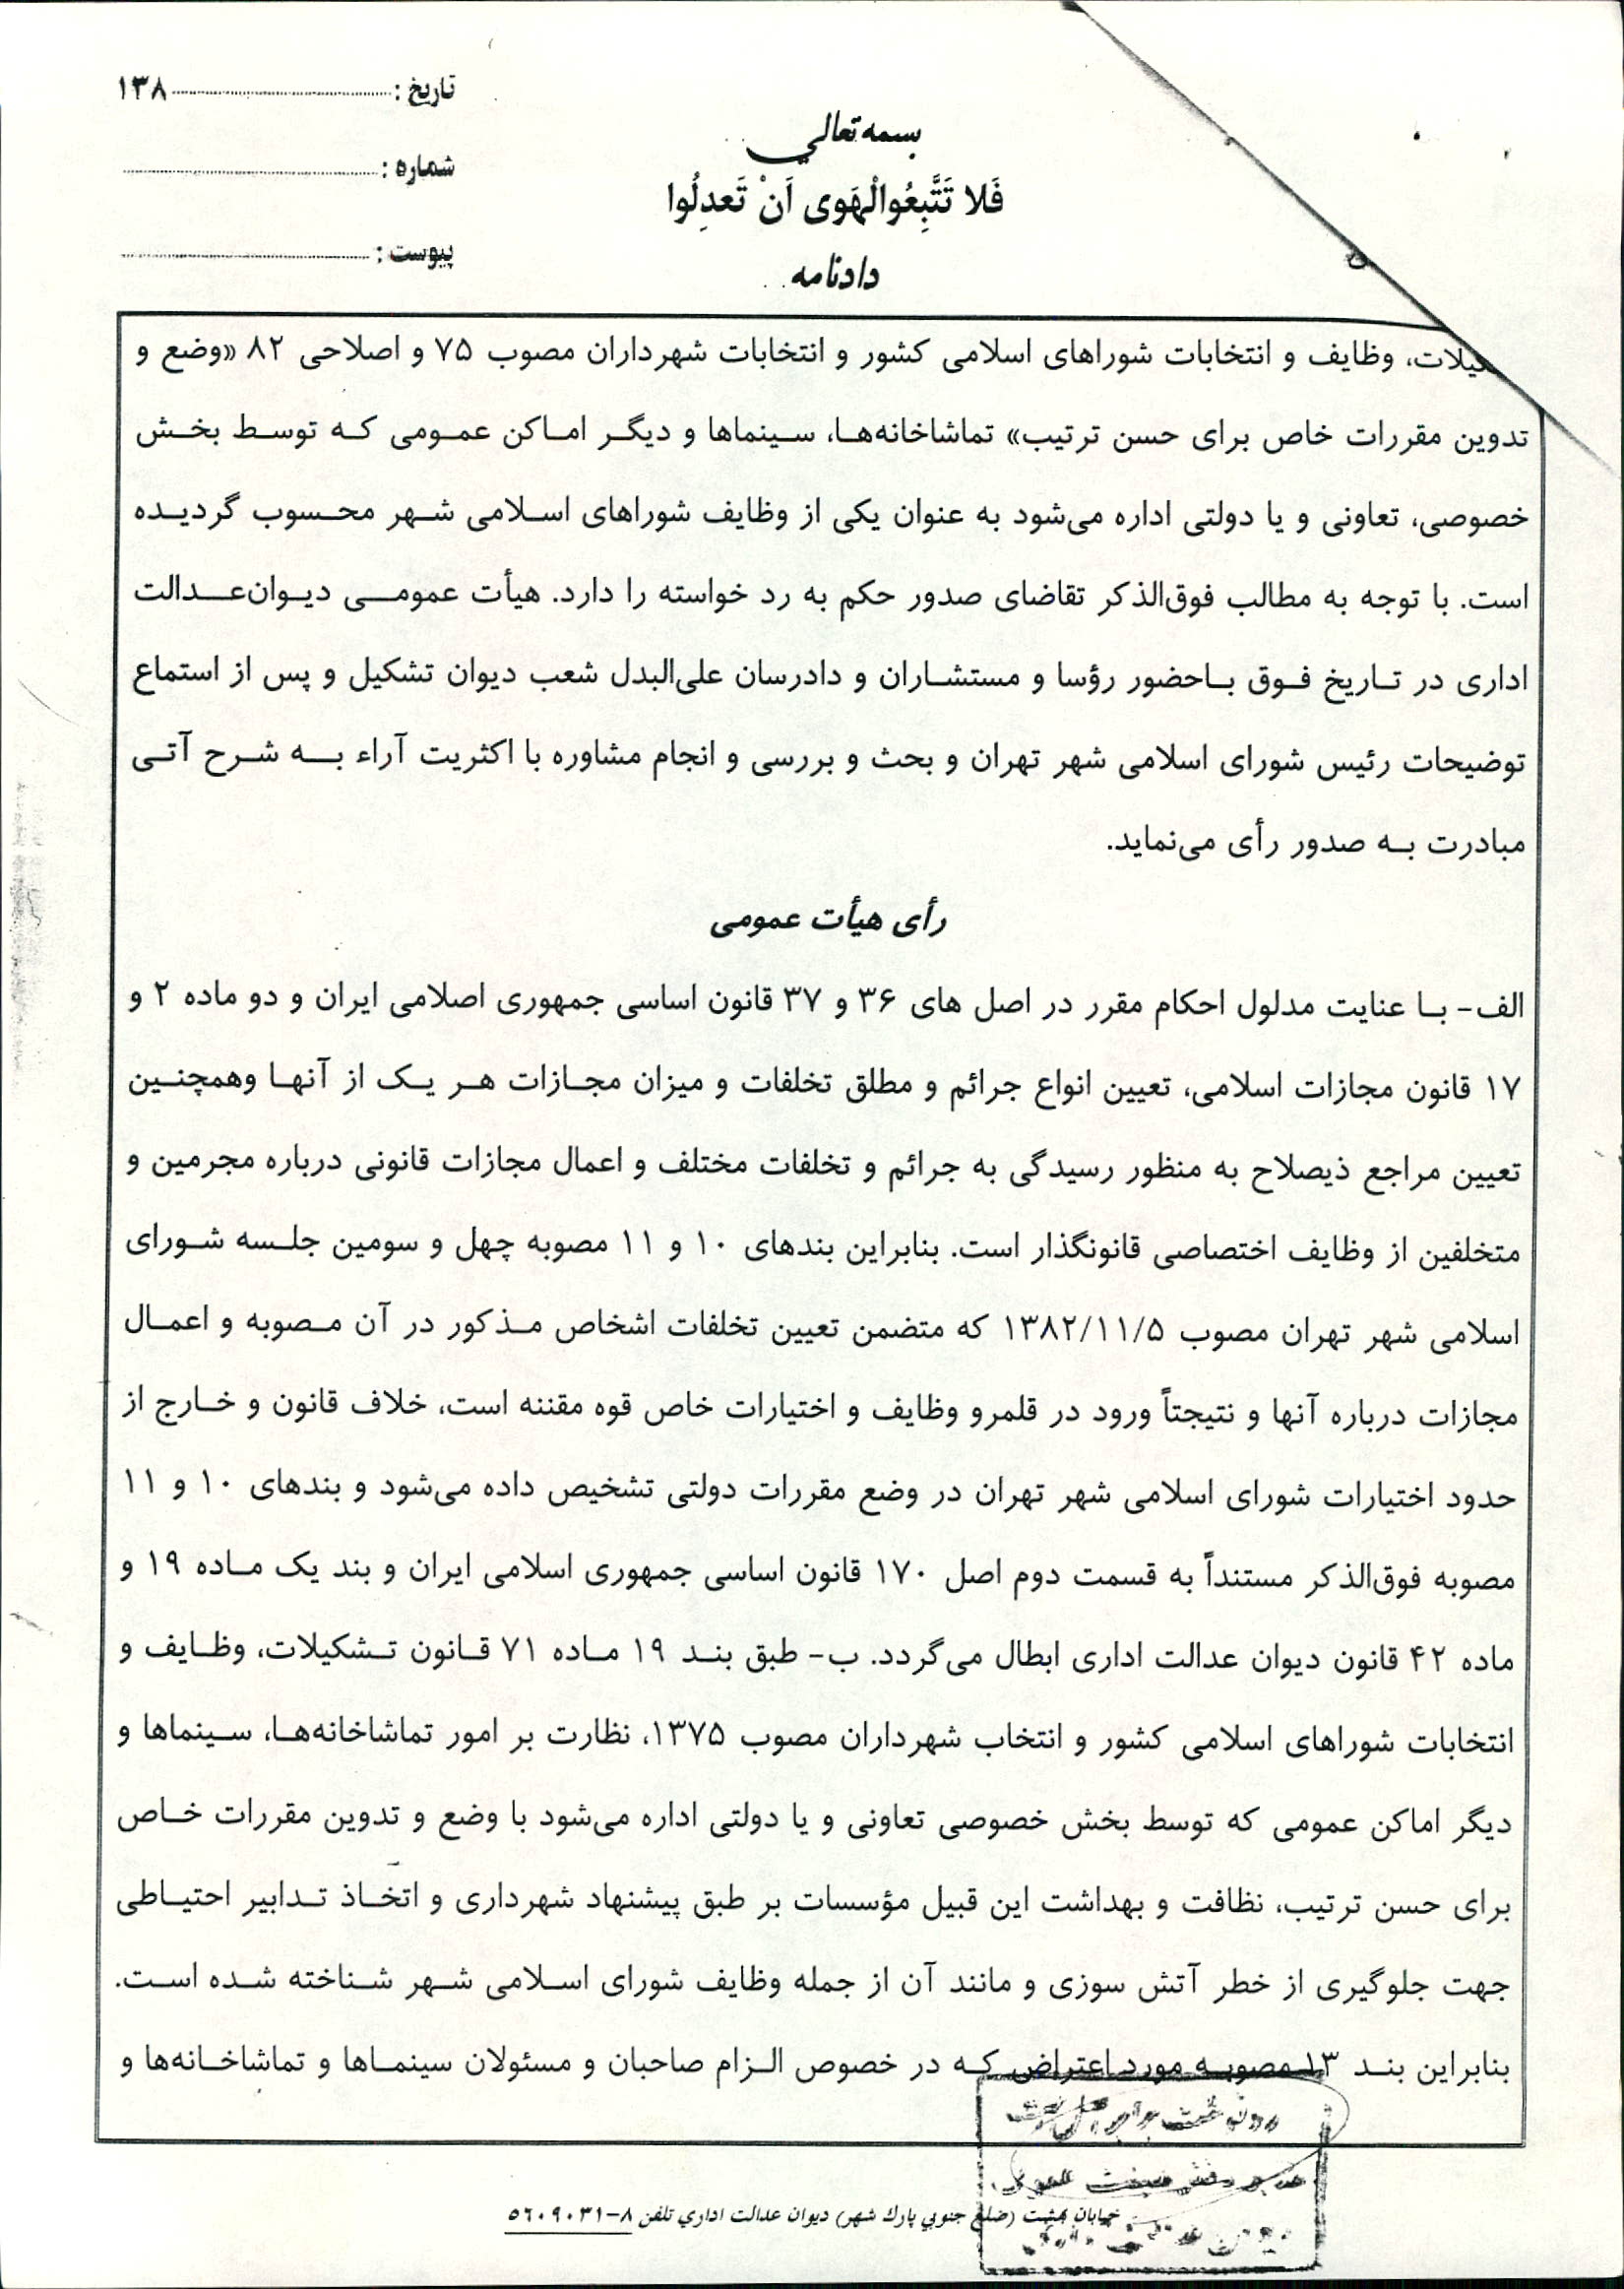 تاریخ : ........................ ۱۳۸
شماره : ........................
پیوست : ........................
بسمه تعالی
فَلا تَتَّبِعُوالْهَوی اَنْ تَعدِلُوا
دادنامه
وظایف و انتخابات شوراهای اسلامی کشور و انتخابات شهرداران مصوب ۷۵ و اصلاحی ۸۲ «وضع و
تدوین مقررات خاص برای حسن ترتیب» تماشاخانه‌ها، سینماها و دیگر اماکن عمومی که توسط بخش
خصوصی، تعاونی و یا دولتی اداره می‌شود به عنوان یکی از وظایف شوراهای اسلامی شهر محسوب گردیده
است. با توجه به مطالب فوق‌الذکر تقاضای صدور حکم به رد خواسته را دارد. هیأت عمومی دیوان‌عدالت
اداری در تاریخ فوق باحضور رؤسا و مستشاران و دادرسان علی‌البدل شعب دیوان تشکیل و پس از استماع
توضیحات رئیس شورای اسلامی شهر تهران و بحث و بررسی و انجام مشاوره با اکثریت آراء به شرح آتی
مبادرت به صدور رأی می‌نماید.
رأی هیأت عمومی
الف- با عنایت مدلول احکام مقرر در اصل های ۳۶ و ۳۷ قانون اساسی جمهوری اصلامی ایران و دو ماده ۲ و
۱۷ قانون مجازات اسلامی، تعیین انواع جرائم و مطلق تخلفات و میزان مجازات هر یک از آنها وهمچنین
تعیین مراجع ذیصلاح به منظور رسیدگی به جرائم و تخلفات مختلف و اعمال مجازات قانونی درباره مجرمین و
متخلفین از وظایف اختصاصی قانونگذار است. بنابراین بندهای ۱۰ و ۱۱ مصوبه چهل و سومین جلسه شورای
اسلامی شهر تهران مصوب ۱۳۸۲/۱۱/۵ که متضمن تعیین تخلفات اشخاص مذکور در آن مصوبه و اعمال
مجازات درباره آنها و نتیجتاً ورود در قلمرو وظایف و اختیارات خاص قوه مقننه است، خلاف قانون و خارج از
حدود اختیارات شورای اسلامی شهر تهران در وضع مقررات دولتی تشخیص داده می‌شود و بندهای ۱۰ و ۱۱
مصوبه فوق‌الذکر مستنداً به قسمت دوم اصل ۱۷۰ قانون اساسی جمهوری اسلامی ایران و بند یک ماده ۱۹ و
ماده ۴۲ قانون دیوان عدالت اداری ابطال می‌گردد. ب- طبق بند ۱۹ ماده ۷۱ قانون تشکیلات، وظایف و
انتخابات شوراهای اسلامی کشور و انتخاب شهرداران مصوب ۱۳۷۵، نظارت بر امور تماشاخانه‌ها، سینماها و
دیگر اماکن عمومی که توسط بخش خصوصی تعاونی و یا دولتی اداره می‌شود با وضع و تدوین مقررات خاص
برای حسن ترتیب، نظافت و بهداشت این قبیل مؤسسات بر طبق پیشنهاد شهرداری و اتخاذ تدابیر احتیاطی
جهت جلوگیری از خطر آتش سوزی و مانند آن از جمله وظایف شورای اسلامی شهر شناخته شده است.
بنابراین بند ۱۳ مصوبه مورد اعتراض که در خصوص الزام صاحبان و مسئولان سینماها و تماشاخانه‌ها و
خیابان بهشت (ضلع جنوبي پارك شهر) ديوان عدالت اداري تلفن ۸-۵۶۰۹۰۳۱